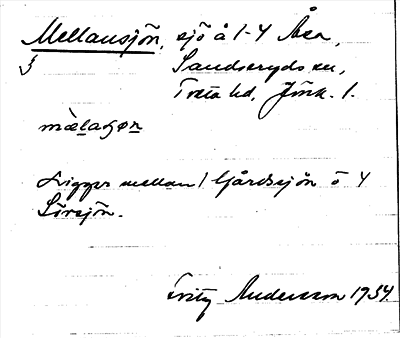 Mellansjön, sjö å 1-4 Åsa,
Sandseryds sn,
Tveta hd, Jönk. l.
mælaʂøn
Ligger mellan 1 Gårdsjön o 4
Lövsjön.
Fritz Andersson 1934.